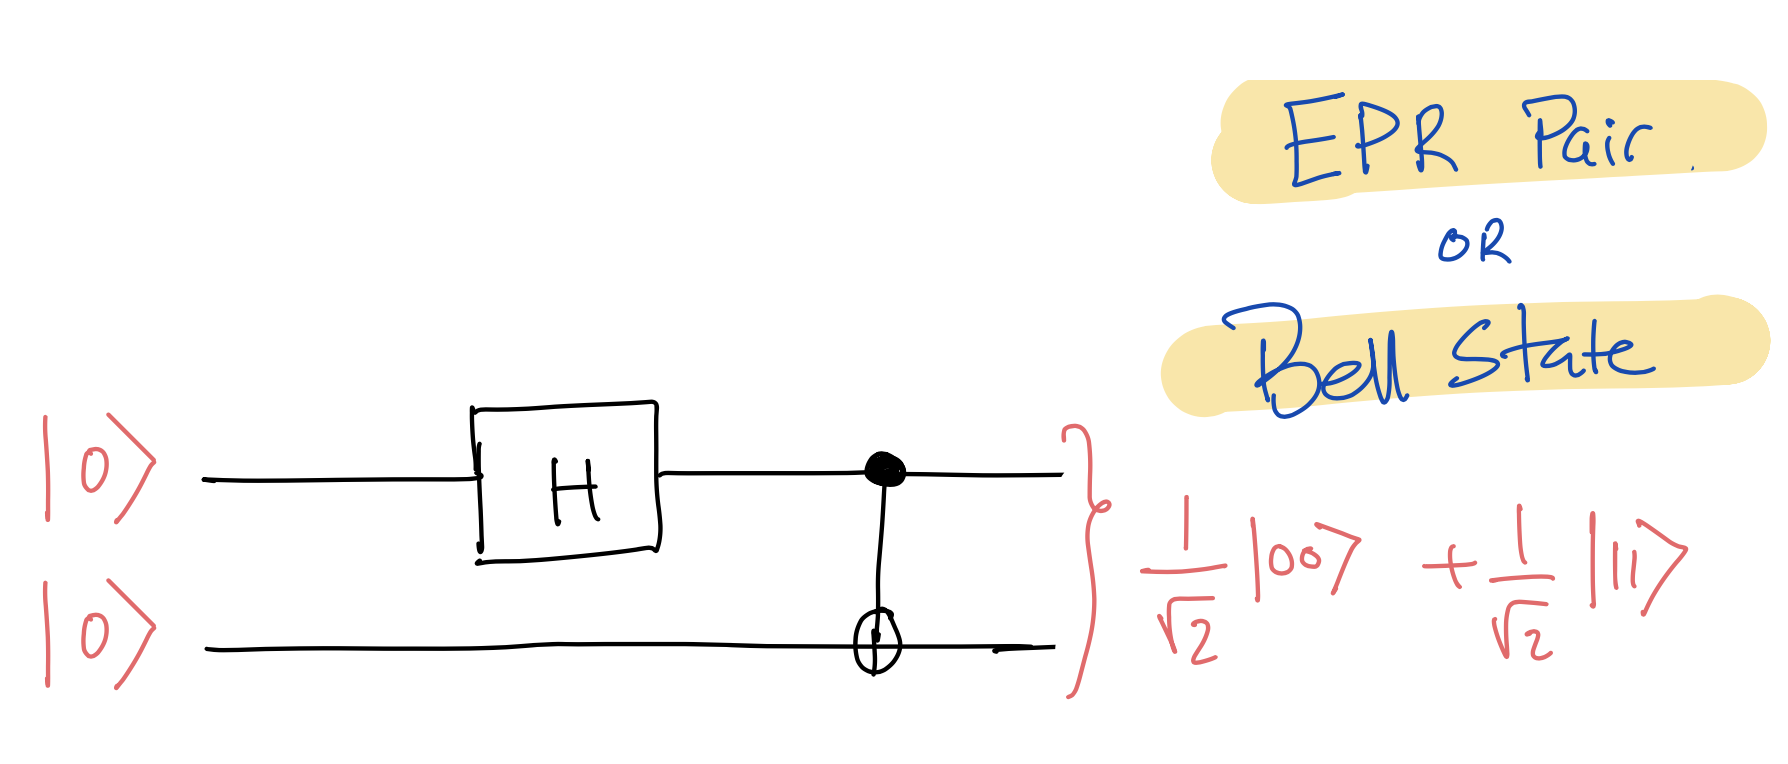 EPR Pair.
OR
Bell State
|0⟩
H
|0⟩
1/√2 |00⟩ + 1/√2 |11⟩